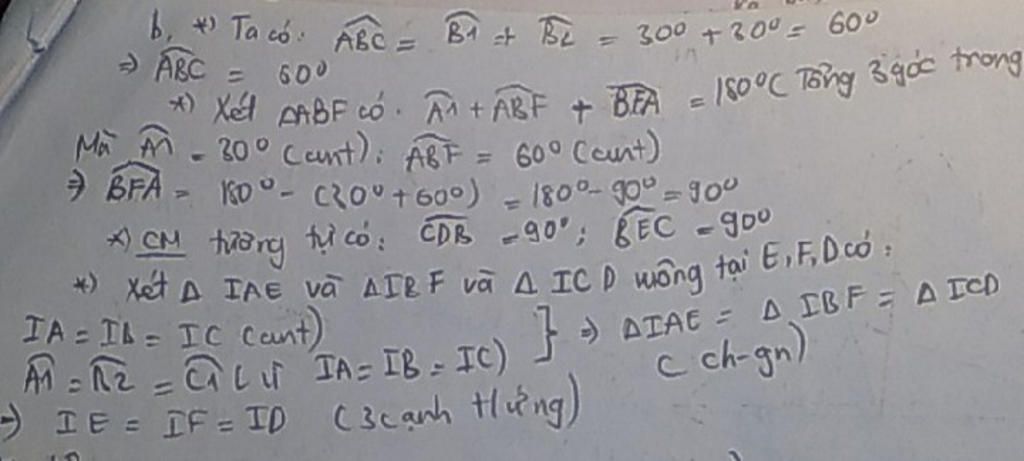 b, *) Ta có: ABC = B1 + B2 = 30° + 30° = 60°
=> ABC = 60°
*) Xét ΔABF có. A1 + ABF + BFA = 180° ( Tổng 3 góc trong
Mà A1 = 30° (cmt); ABF = 60° (cmt)
=> BFA = 180° - (30° + 60°) = 180° - 90° = 90°
*) CM tương tự có: CDB = 90°; BEC = 90°
*) Xét Δ IAE và ΔIBF và Δ ICD vuông tại E, F, D có:
IA = Ib = IC (cmt)
A1 = B2 = C1 ( vì IA = IB = IC) } => ΔIAE = Δ IBF = Δ ICD
( ch-gn)
=> IE = IF = ID (3 cạnh tứng)